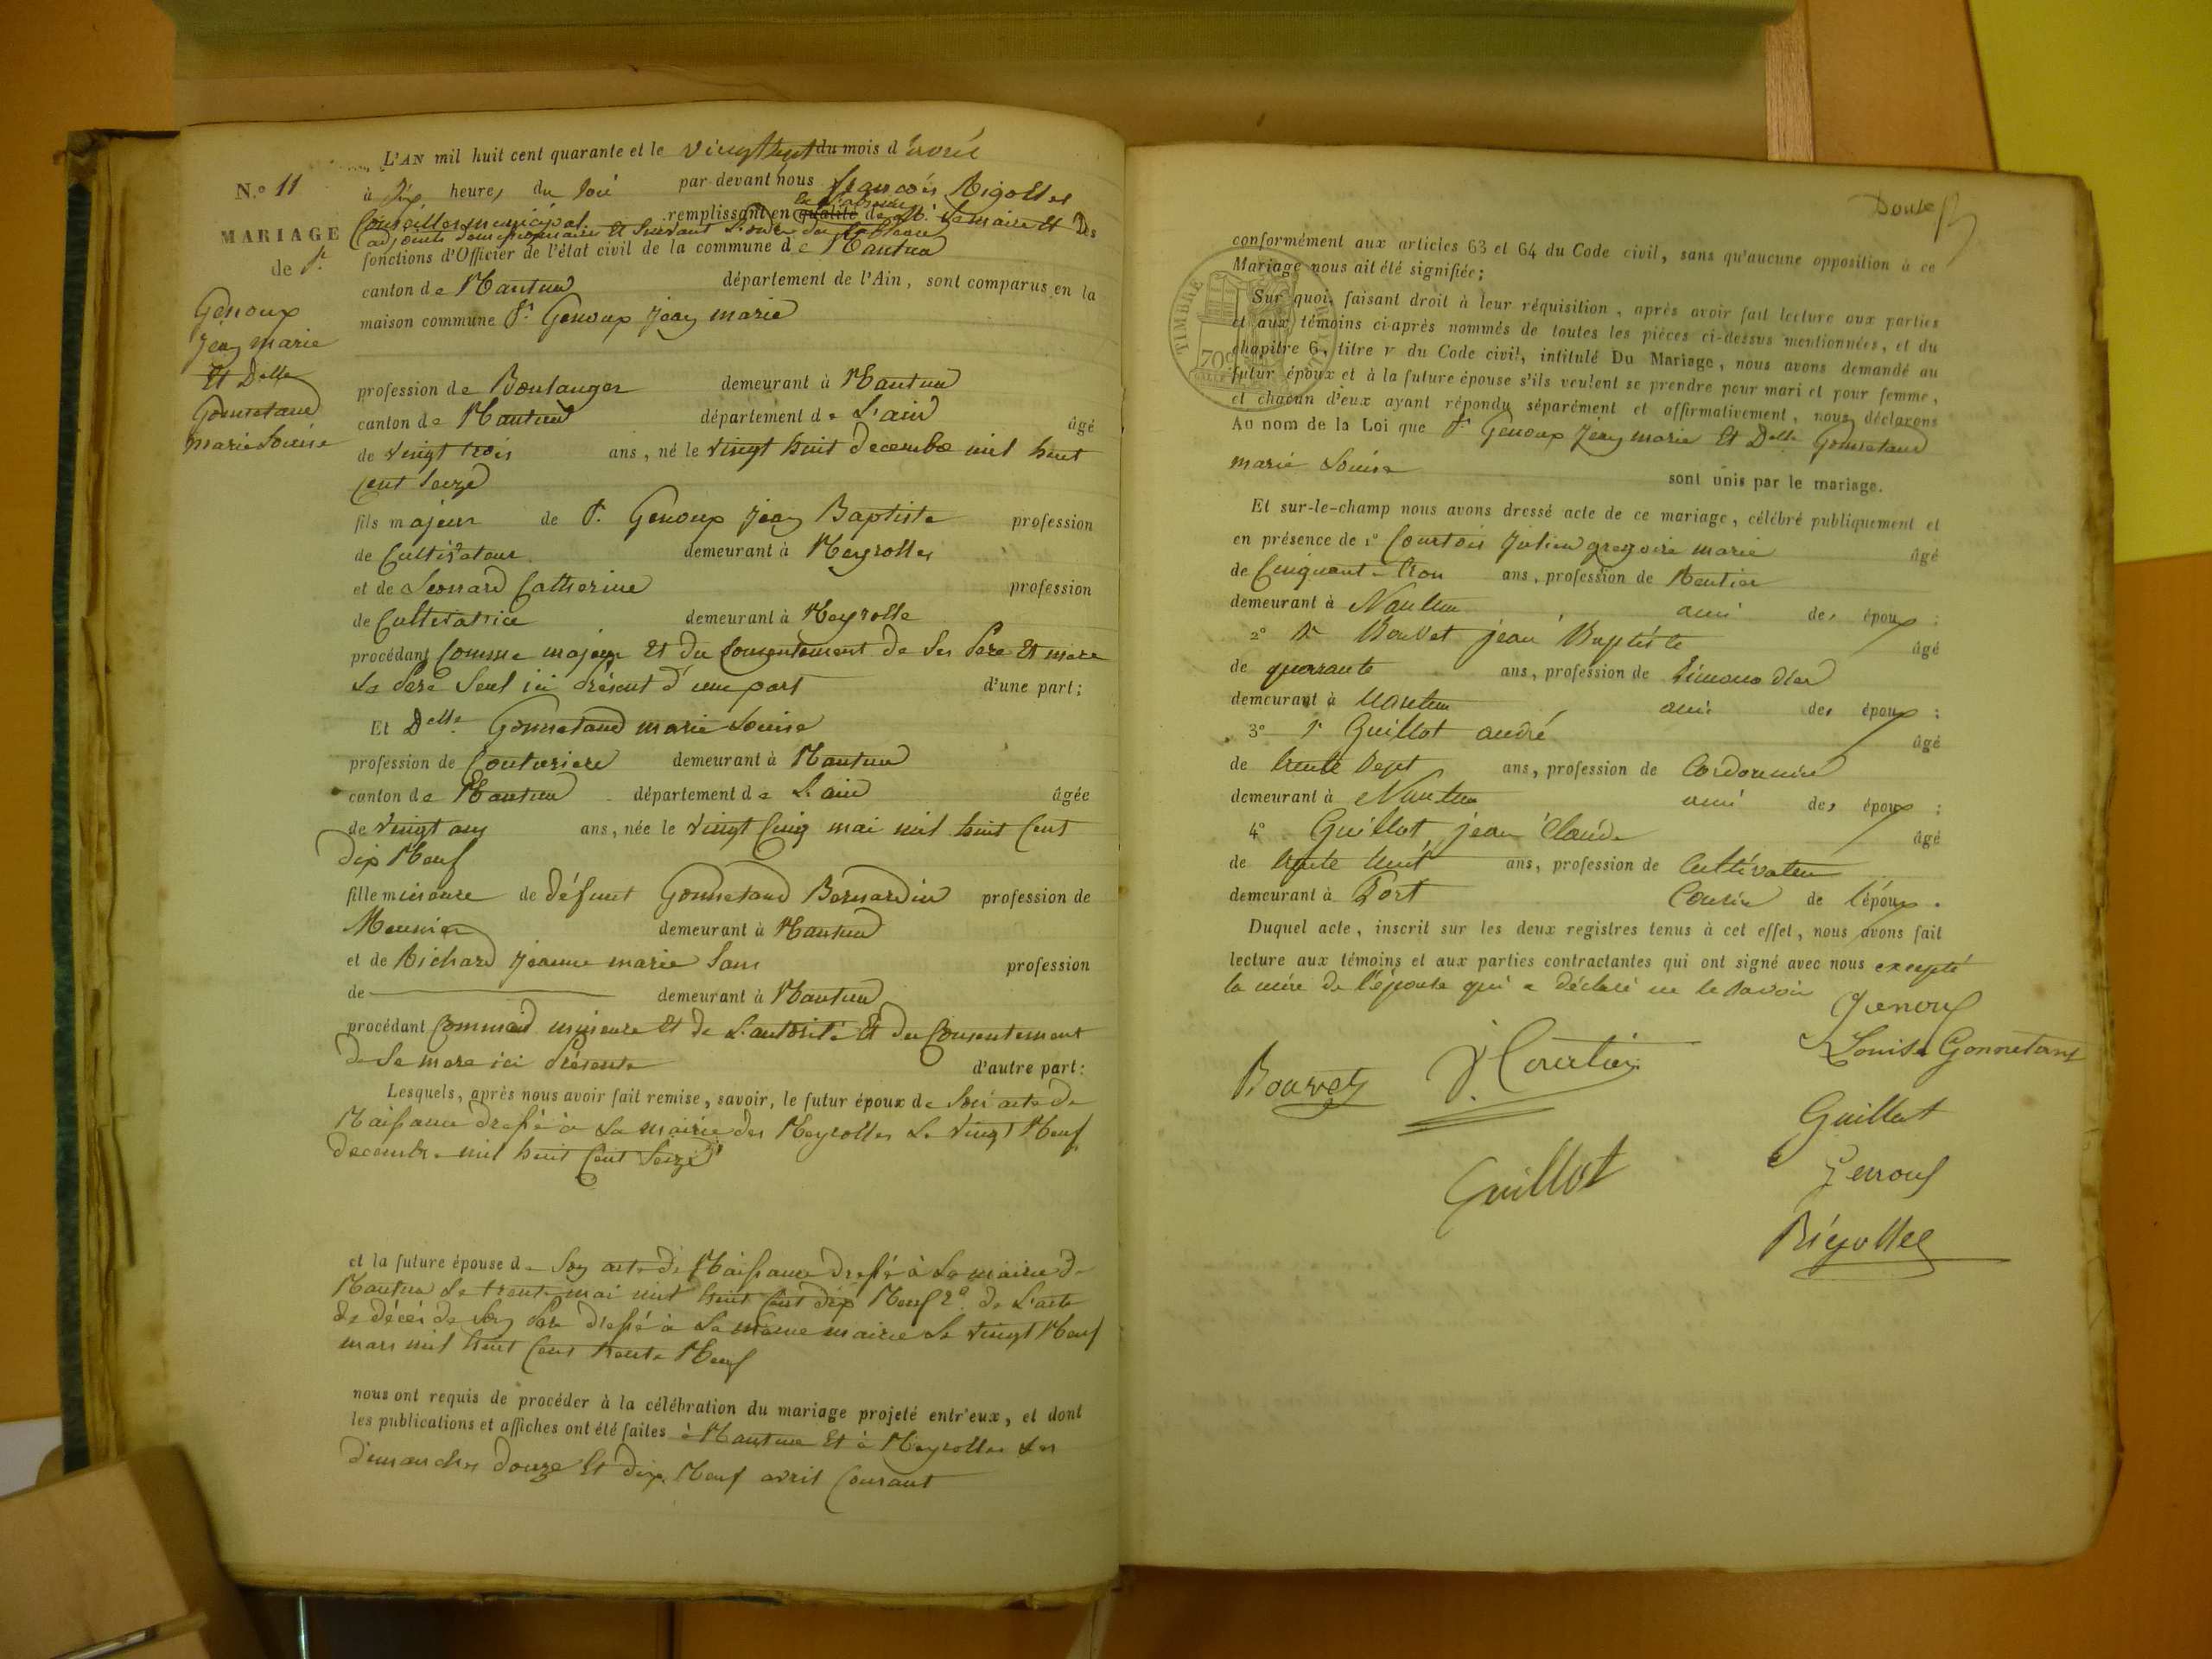 L'AN mil huit cent quarante et le vingt sept du mois d'avril
N.o 11
à six heures du soir par-devant nous françois Rigollet
Conseiller municipal remplissant en qualité de l'absence de Mr. le maire et Des
adjoints demissionnaire et suivant l'ordre du tableau
MARIAGE
fonctions d'Officier de l'état civil de la commune de Nantua
de Sr.
canton de Nantua département de l'Ain, sont comparus en la
Genoux
maison commune Sr. Genoux jean marie
jean marie
Et Delle
profession de Boulanger demeurant à Nantua
Gonnetand
canton de Nantua département de L'ain âgé
marie Louise
de vingt trois ans, né le vingt huit decembre mil huit
cent seize
fils majeur de Sr. Genoux jean Baptiste profession
de Cultivateur demeurant à Neyrolles
et de Leonard Catherine profession
de Cultivatrice demeurant à Neyrolle
procédant Comme majeur et du Consentement de ses Père et mere
la Père seul ici Présent d'une part d'une part;
Et Delle Gonnetand marie Louise
profession de Couturiere demeurant à Nantua
canton de Nantua département de L'ain âgée
de vingt ans ans, née le vingt Cinq mai mil huit Cent
Dix Neuf
fille mineure de défunt Gonnetand Bernardin profession de
Meunier demeurant à Nantua
et de Richard jeanne marie sans profession
de demeurant à Nantua
procédant Comme mineure et de L'autorité Et du Consentement
de sa mere ici Présente d'autre part:
Lesquels, après nous avoir fait remise, savoir, le futur époux de son acte de
Naissance dressé à la mairie des Neyrolles le vingt Neuf
decembre mil huit Cent seize
et la future épouse de son acte de Naissance dressé à la mairie de
Nantua le trente mai mil huit Cent dix Neuf 2o. de L'acte
de décès de son Père dressé à la même mairie le vingt Neuf
mars mil huit Cent trente Neuf
nous ont requis de procéder à la célébration du mariage projeté entr'eux, et dont
les publications et affiches ont été faites à Nantua et à Neyrolles les
dimanches douze et dix Neuf avril Courant
Douze
conformément aux articles 63 et 64 du Code civil, sans qu'aucune opposition à ce
Mariage nous ait été signifiée;
TIMBRE
70c
Sur quoi, faisant droit à leur réquisition, après avoir fait lecture aux parties
et aux témoins ci-après nommés de toutes les pièces ci-dessus mentionnées, et du
chapitre 6, titre v du Code civil, intitulé Du Mariage, nous avons demandé au
futur époux et à la future épouse s'ils veulent se prendre pour mari et pour femme,
et chacun d'eux ayant répondu séparément et affirmativement, nous déclarons
Au nom de la Loi que Sr. Genoux jean marie Et Delle Gonnetand
marie Louise sont unis par le mariage.
Et sur-le-champ nous avons dressé acte de ce mariage, célébré publiquement et
en présence de 1o Courtois Julien gregoire marie âgé
de Cinquante trois ans, profession de Rentier
demeurant à Nantua ami des époux;
2o Sr Bouvet jean Baptiste âgé
de quarante ans, profession de Limonadier
demeurant à Nantua ami des époux;
3o Sr Guillot andré âgé
de trente sept ans, profession de Cordonnier
demeurant à Nantua ami des époux;
4o Guillot jean Claude âgé
de trente huit ans, profession de Cultivateur
demeurant à Port Cousin de l'époux.
Duquel acte, inscrit sur les deux registres tenus à cet effet, nous avons fait
lecture aux témoins et aux parties contractantes qui ont signé avec nous excepté
la mère de l'épouse qui a déclaré ne le savoir
Genoux
Louise Gonnetand
Bouvet J Courtois
Guillot
Guillot
Genoux
Rigollet